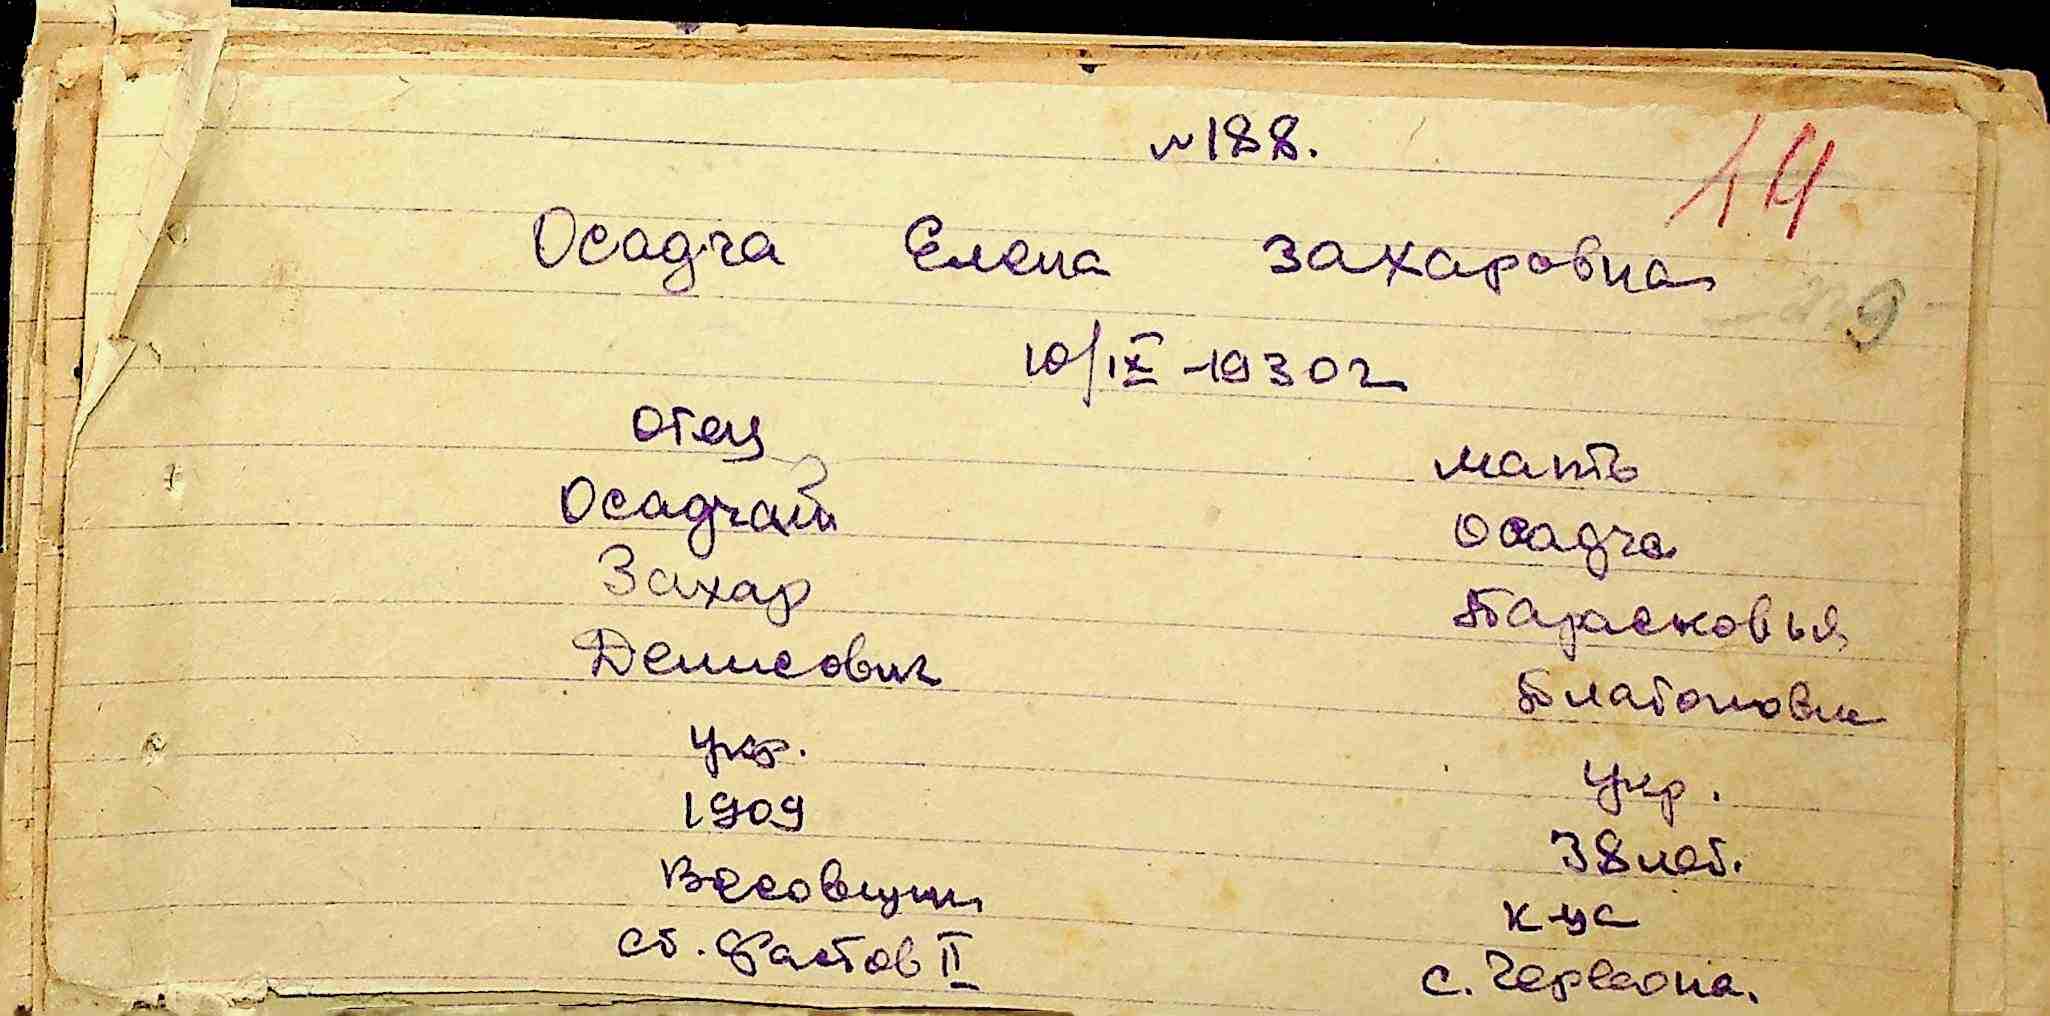 №188.
14
Осадча Елена Захаровна
229
10/IX-1930г
отец
мать
Осадчий
Осадча
Захар
Парасковья
Денисович
Платоновна
укр.
укр.
1909
38 лет.
Весовщик
к-ца
ст. Фастов II
с. Червона.